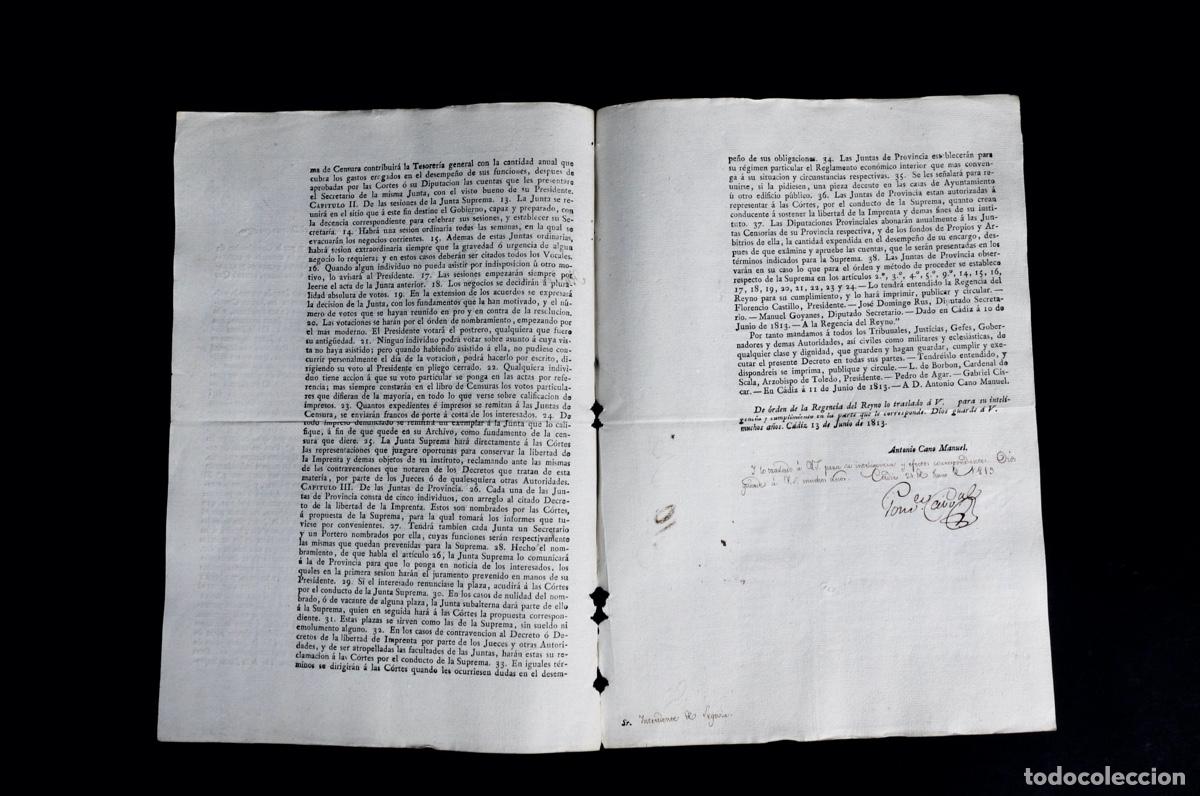 ma de Censura contribuirá la Tesorería general con la cantidad anual que
cubra los gastos erogados en el desempeño de sus funciones, despues de
aprobadas por las Cortes ó su Diputacion las cuentas que les presentare
el Secretario de la misma Junta, con el visto bueno de su Presidente.
CAPITULO II. De las sesiones de la Junta Suprema. 13. La Junta se re-
unirá en el sitio que á este fin destine el Gobierno, capaz y preparado, con
la decencia correspondiente para celebrar sus sesiones, y establecer su Se-
cretaría. 14. Habrá una sesion ordinaria todas las semanas, en la qual se
evacuarán los negocios corrientes. 15. Ademas de estas Juntas ordinarias,
habrá sesion extraordinaria siempre que la gravedad ó urgencia de algun
negocio lo requiera; y en estos casos deberán ser citados todos los Vocales.
16. Quando algun individuo no pueda asistir por indisposicion ú otro mo-
tivo, lo avisará al Presidente. 17. Las sesiones empezarán siempre por
leerse el acta de la Junta anterior. 18. Los negocios se decidirán á plura-
lidad absoluta de votos. 19. En la extension de los acuerdos se expresará
la decision de la Junta, con los fundamentos que la han motivado, y el nú-
mero de votos que se hayan reunido en pro y en contra de la resolucion.
20. Las votaciones se harán por el órden de nombramiento, empezando por
el mas moderno. El Presidente votará el postrero, qualquiera que fuere
su antigüedad. 21. Ningun individuo podrá votar sobre asunto á cuya vis-
ta no haya asistido; pero quando habiendo asistido á ella, no pudiese con-
currir personalmente el dia de la votacion, podrá hacerlo por escrito, di-
rigiendo su voto al Presidente en pliego cerrado. 22. Qualquiera indivi-
duo tiene accion á que su voto particular se ponga en las actas por refe-
rencia; mas siempre constarán en el libro de Censuras los votos particula-
res que difieran de la mayoría, en todo lo que verse sobre calificacion de
impresos. 23. Quantos expedientes é impresos se remitan á las Juntas de
Censura, se enviarán francos de porte á costa de los interesados. 24. De
todo impreso denunciado se remitirá un exemplar á la Junta que lo cali-
fique, á fin de que quede en su Archivo, como fundamento de la censu-
sura que diere. 25. La Junta Suprema hará directamente á las Córtes
las representaciones que juzgare oportunas para conservar la libertad de
la Imprenta y demas objetos de su instituto, reclamando ante las mismas
de las contravenciones que notaren de los Decretos que tratan de esta
materia, por parte de los Jueces ó de qualesquiera otras Autoridades.
CAPITULO III. De las Juntas de Provincia. 26. Cada una de las Jun-
tas de Provincia consta de cinco individuos, con arreglo al citado Decre-
to de la libertad de la Imprenta. Estos son nombrados por las Córtes,
á propuesta de la Suprema, para la qual tomará los informes que tu-
viese por convenientes. 27. Tendrá tambien cada Junta un Secretario
y un Portero nombrados por ella, cuyas funciones serán respectivamente
las mismas que quedan prevenidas para la Suprema. 28. Hecho el nom-
bramiento, de que habla el artículo 26, la Junta Suprema lo comunicará
á la de Provincia para que lo ponga en noticia de los interesados, los
quales en la primera sesion harán el juramento prevenido en manos de su
Presidente. 29. Si el interesado renunciase la plaza, acudirá á las Córtes
por el conducto de la Junta Suprema. 30. En los casos de nulidad del nom-
brado, ó de vacante de alguna plaza, la Junta subalterna dará parte de ello
á la Suprema, quien en seguida hará á las Córtes la propuesta correspon-
diente. 31. Estas plazas se sirven como las de la Suprema, sin sueldo ni
emolumento alguno. 32. En los casos de contravencion al Decreto ó De-
cretos de la libertad de Imprenta por parte de los Jueces y otras Autori-
dades, y de ser atropelladas las facultades de las Juntas, harán estas su re-
clamacion á las Córtes por el conducto de la Suprema. 33. En iguales tér-
minos se dirigirán á las Córtes quando les ocurriesen dudas en el desem-
peño de sus obligaciones. 34. Las Juntas de Provincia establecerán para
su régimen particular el Reglamento económico interior que mas conven-
ga á su situacion y circunstancias respectivas. 35. Se les señalará para re-
unirse, si la pidiesen, una pieza decente en las casas de Ayuntamiento
ú otro edificio público. 36. Las Juntas de Provincia estan autorizadas á
representar á las Córtes, por el conducto de la Suprema, quanto crean
conducente á sostener la libertad de la Imprenta y demas fines de su insti-
tuto. 37. Las Diputaciones Provinciales abonarán anualmente á las Jun-
tas Censorias de su Provincia respectiva, y de los fondos de Propios y Ar-
bitrios de ella, la cantidad expendida en el desempeño de su encargo, des-
pues de que exâmine y apruebe las cuentas, que le serán presentadas en los
términos indicados para la Suprema. 38. Las Juntas de Provincia obser-
varán en su caso lo que para el órden y método de proceder se establece
respecto de la Suprema en los artículos 2.º, 3.º, 4.º, 5.º, 9.º, 14, 15, 16,
17, 18, 19, 20, 21, 22, 23 y 24. — Lo tendrá entendido la Regencia del
Reyno para su cumplimiento, y lo hará imprimir, publicar y circular. —
Florencio Castillo, Presidente. — José Domingo Rus, Diputado Secreta-
rio. — Manuel Goyanes, Diputado Secretario. — Dado en Cádiz á 10 de
Junio de 1813. — A la Regencia del Reyno."
Por tanto mandamos á todos los Tribunales, Justicias, Gefes, Gober-
nadores y demas Autoridades, así civiles como militares y eclesiásticas, de
qualquier clase y dignidad, que guarden y hagan guardar, cumplir y exe-
cutar el presente Decreto en todas sus partes. — Tendréislo entendido, y
dispondreis se imprima, publique y circule. — L. de Borbon, Cardenal de
Scala, Arzobispo de Toledo, Presidente. — Pedro de Agar. — Gabriel Cis-
car. — En Cádiz á 11 de Junio de 1813. — A D. Antonio Cano Manuel.
De órden de la Regencia del Reyno lo traslado á V. para su inteli-
gencia y cumplimiento en la parte que le corresponde. Dios guarde á V.
muchos años. Cádiz 13 de Junio de 1813.
Antonio Cano Manuel.
Y lo traslado á V. para su inteligencia y efectos correspondientes. Dios
guarde á V. muchos años. Cádiz 21 de Junio de 1813
Sr. Intendente de Segovia.
todocoleccion